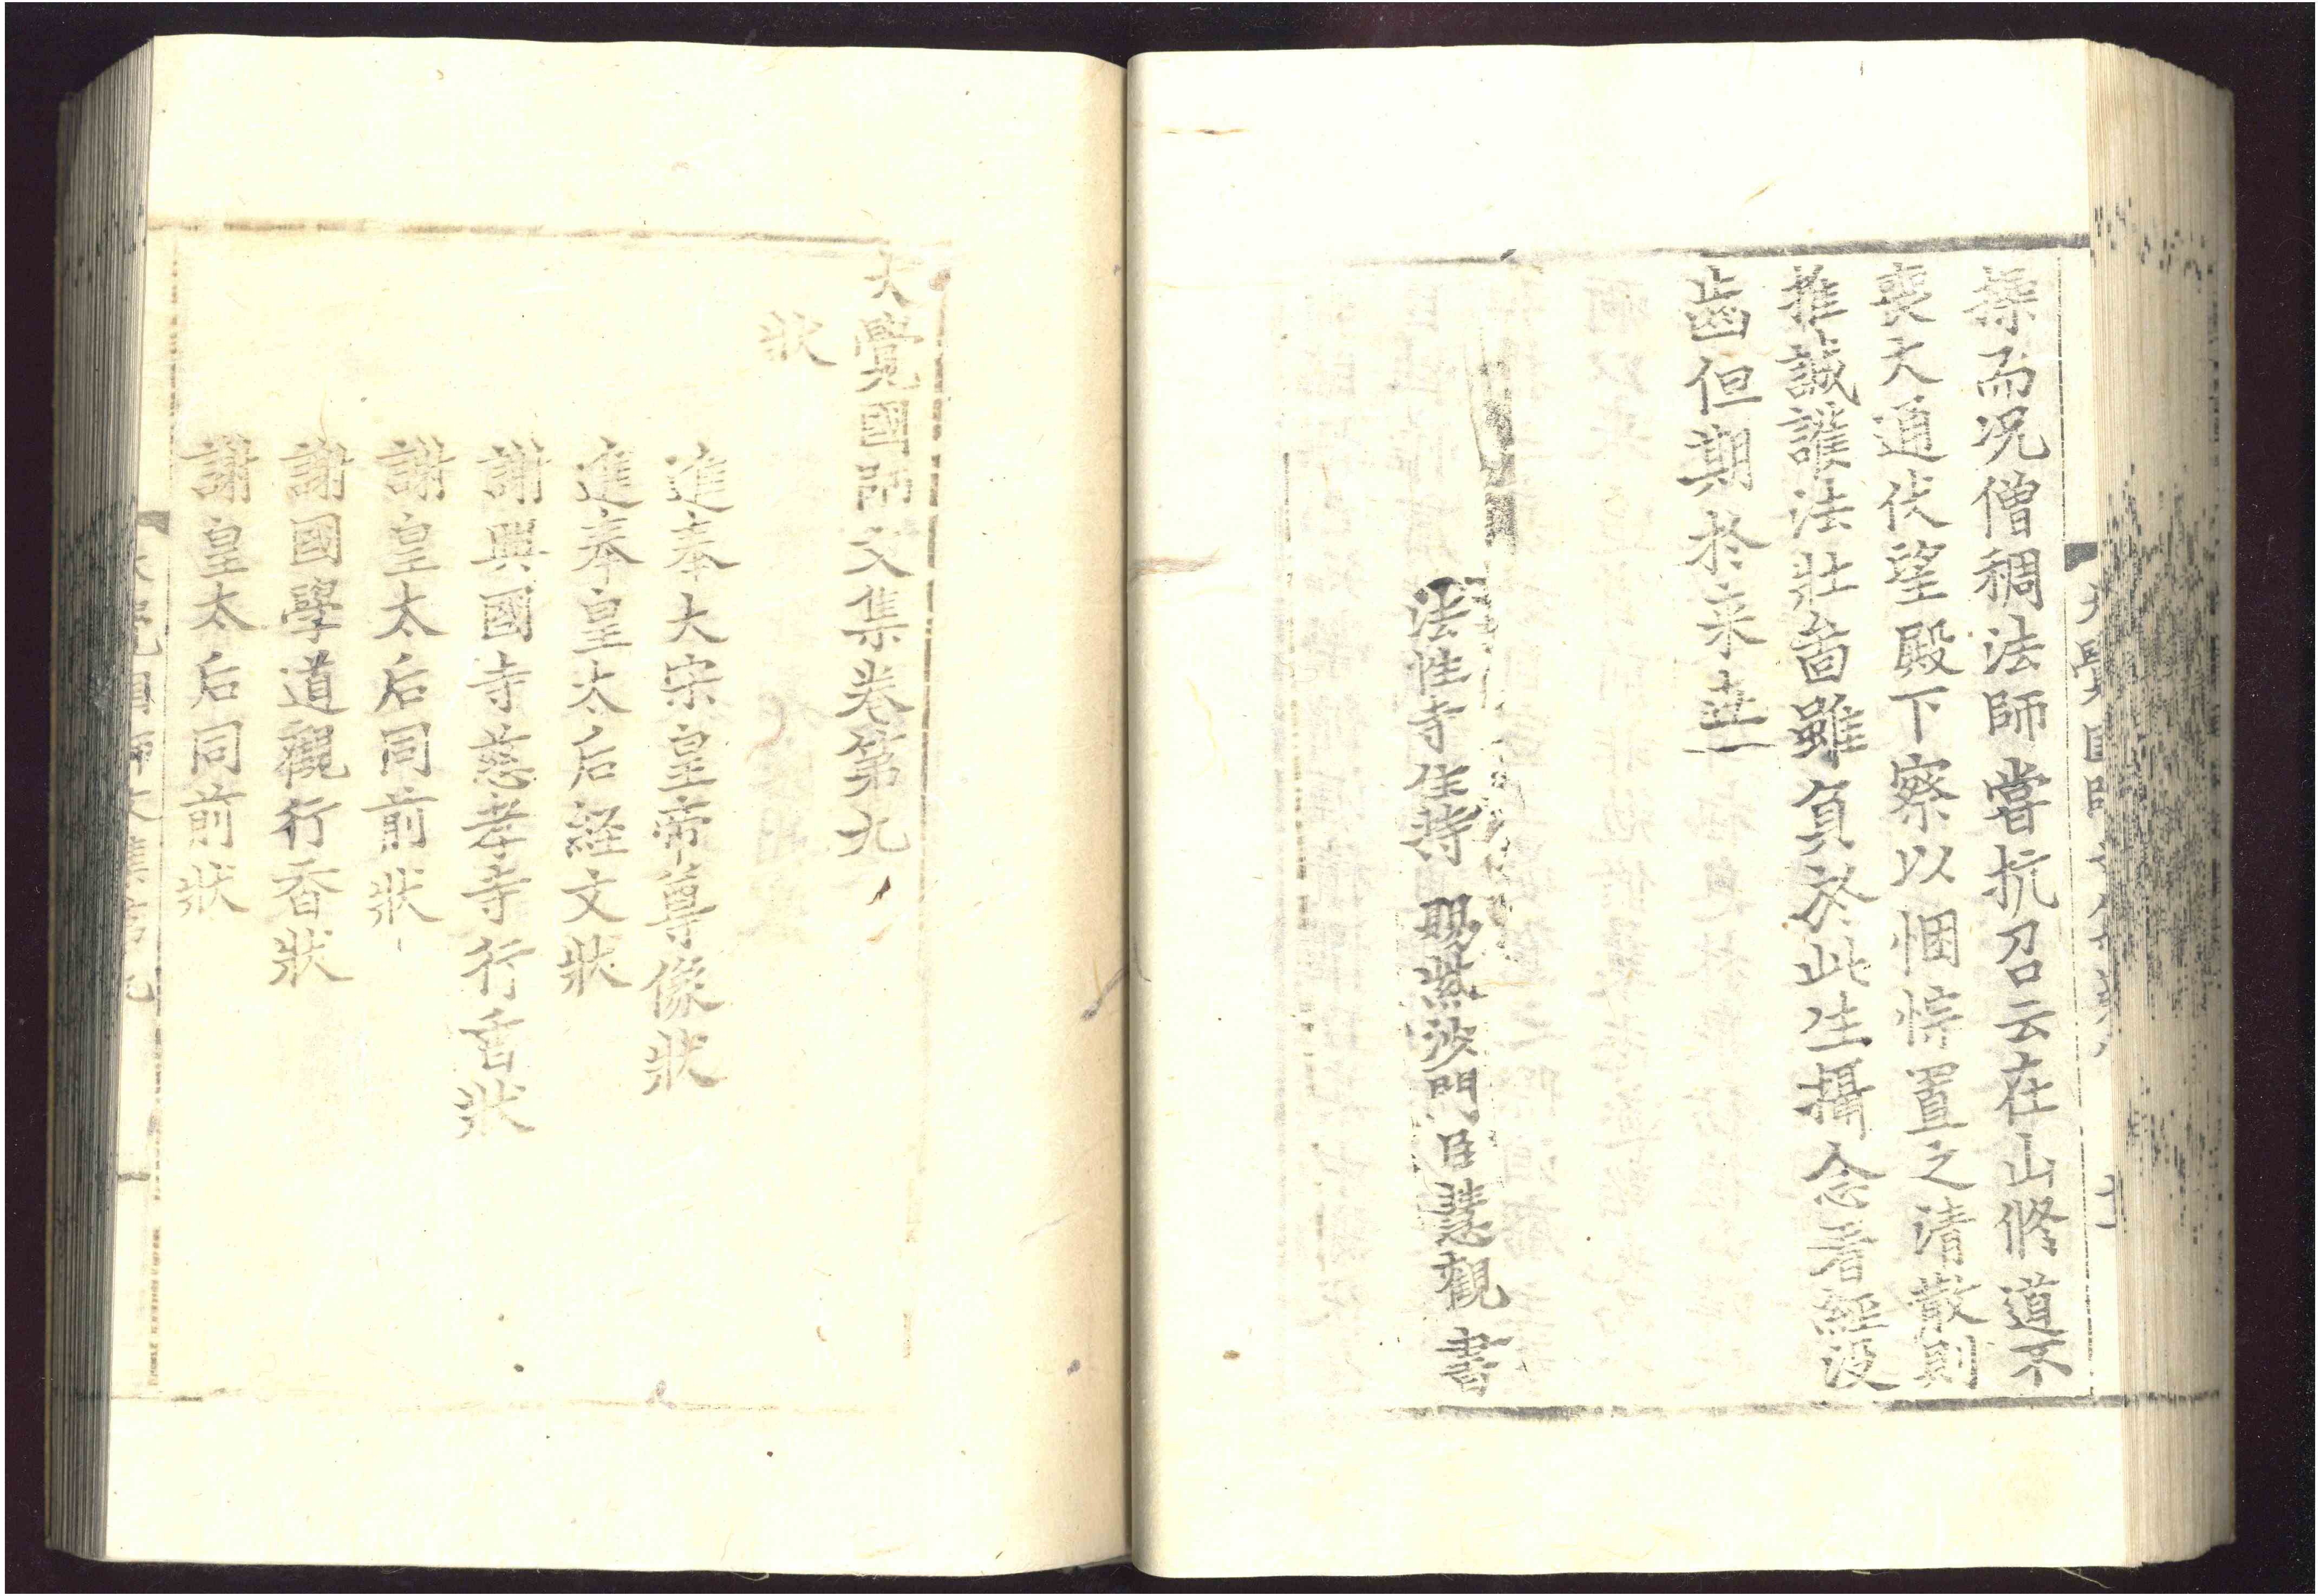 操而况僧稠法師嘗抗召云在山修道不
喪大通伏望殿下察以悃悰置之清散則
推誠護法壯啚雖負於此生攝念看經沒
齒但期於來世
法性寺住持 賜紫沙門臣慧觀 書
大覺國師文集卷第九
狀
進奉大宋皇帝尊像狀
進奉皇太后経文狀
謝興國寺慈孝寺行香狀
謝皇太后同前狀
謝國學道觀行香狀
謝皇太后同前狀